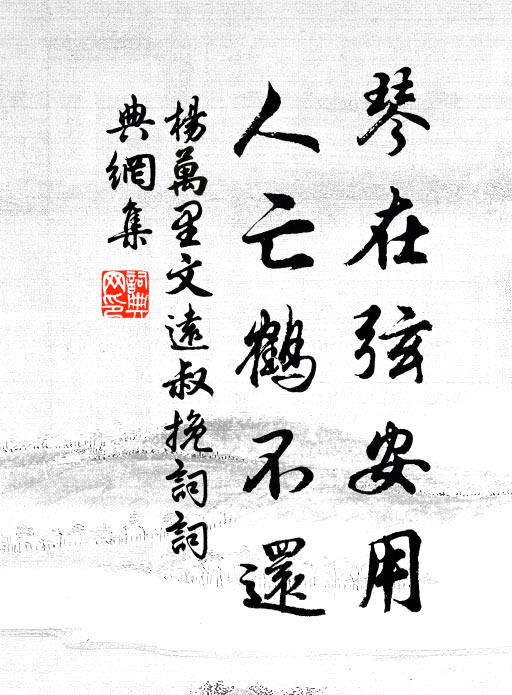 琴在弦安用
人亡鶴不還
楊萬里文遠叔挽詞詞
典網集
詞典網印